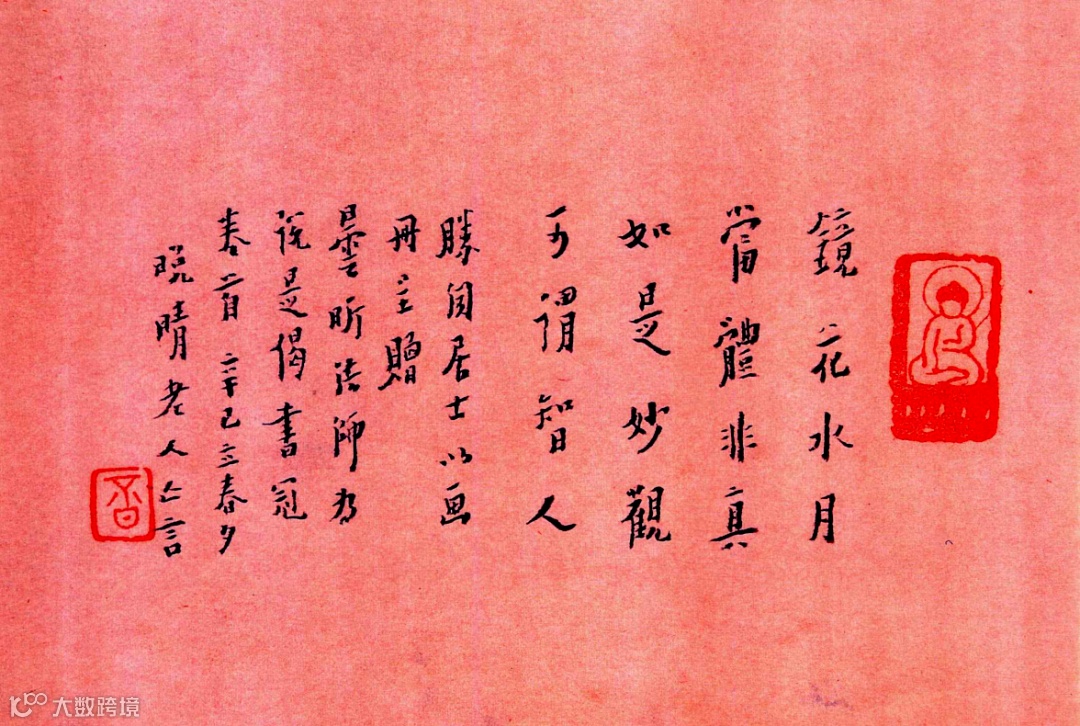 鏡花水月
當體非真
如是妙觀
可謂智人
勝居士以画
冊贈
曇昕法師為
說是偈書冠
卷首 辛巳立春夕
晚晴老人亡言
大数跨境